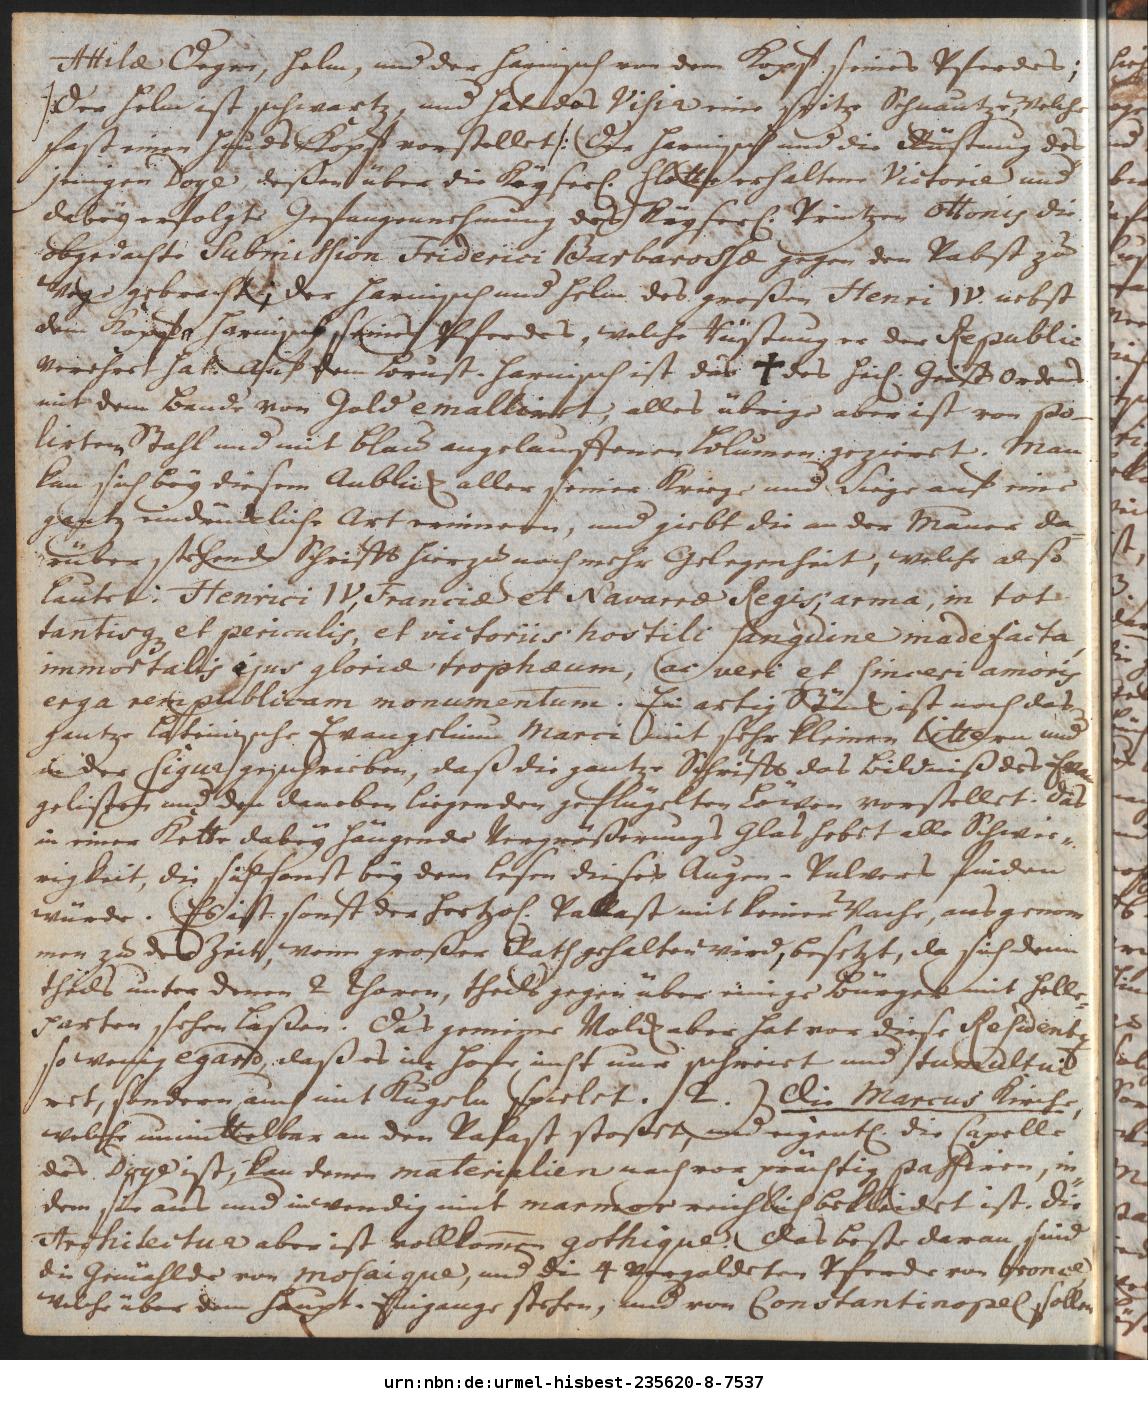 Attilæ Degen, Helm, und der Harnisch von dem Kopf seines Pferdes;
/:Der Helm ist schwartz, und hat das Visir eine spitze Schnautze, welche
fast einen Hunds Kopf vorstellet:/ Der Harnisch und die Rüstung des
jenigen Doge, deßen über die Kayserl. Flotte erhaltene Victorie und
dabey erfolgte Gefangennehmung des Kayserl. Printzen Ottonis die
obgedachte Submission Friderici Barbarossæ gegen den Pabst zu
Wege gebracht; der Harnisch und Helm des großen Henri IV. nebst
dem Kopf Harnisch seines Pferdes, welche Rüstung er der Republic
verehret hat. Auf dem Brust-Harnisch ist das † des heil. Geist Ordens
mit dem Bande von Gold emalliret, alles übrige aber ist von po-
lirtem Stahl und mit blau angelauffenen Blumen gezieret. Man
kan sich bey diesem Anblick aller seiner Kriege und Siege auf eine
gantz eindrückliche Art erinnern, und giebt die an der Mauer da-
rüber stehende Schrifft hierzu noch mehr Gelegenheit, welche also
lautet: Henrici IV, Franciæ et Navarræ Regis, arma, in tot
tantisq et periculis, et victoriis hostili sanguine madefacta,
immortalis ejus gloriæ trophæum, ac veri et sinceri amoris
erga rempublicam monumentum. Ein artig Stück ist noch das
gantze lateinische Evangelium Marci mit sehr kleinen Littern und
in der Figur geschrieben, daß die gantze Schrifft das Bildniß des Evan
gelisten und den daneben liegenden geflügelten Löwen vorstellet. Das
in einer Kette dabey hängende Vergrößerungs Glas hebet alle Schwie-
rigkeit, die sich sonst bey dem Lesen dieses Augen-Pulvers finden
würde. Es ist sonst der Hertzol. Pallast mit keiner Wache, ausgenom
men zu der Zeit, wenn großer Rath gehalten wird, besetzt, da sich denn
theils unter denen 2 Thoren, theils gegen über einige Bürger mit Helle-
parten sehen laßen. Das gemeine Volck aber hat vor diese Residentz
so wenig egard, daß es im Hofe nicht nur schreiet und tumultui
ret, sondern auch mit Kugeln spielet. 2.) Die Marcus Kirche,
welche unmittelbar an den Palast stoßet, und eigentl. die Capelle
des Doge ist, kan denen materialien nach vor prächtig passiren, in-
dem sie aus und inwendig mit marmor reichlich bekleidet ist. Die
Architectur aber ist vollkomen gothique. Das beste daran sind
die Gemählde von mosaique, und die 4 vergoldeten Pferde von bronce,
welche über dem Haupt-Eingange stehen, und von Constantinopel sollen
urn:nbn:de:urmel-hisbest-235620-8-7537